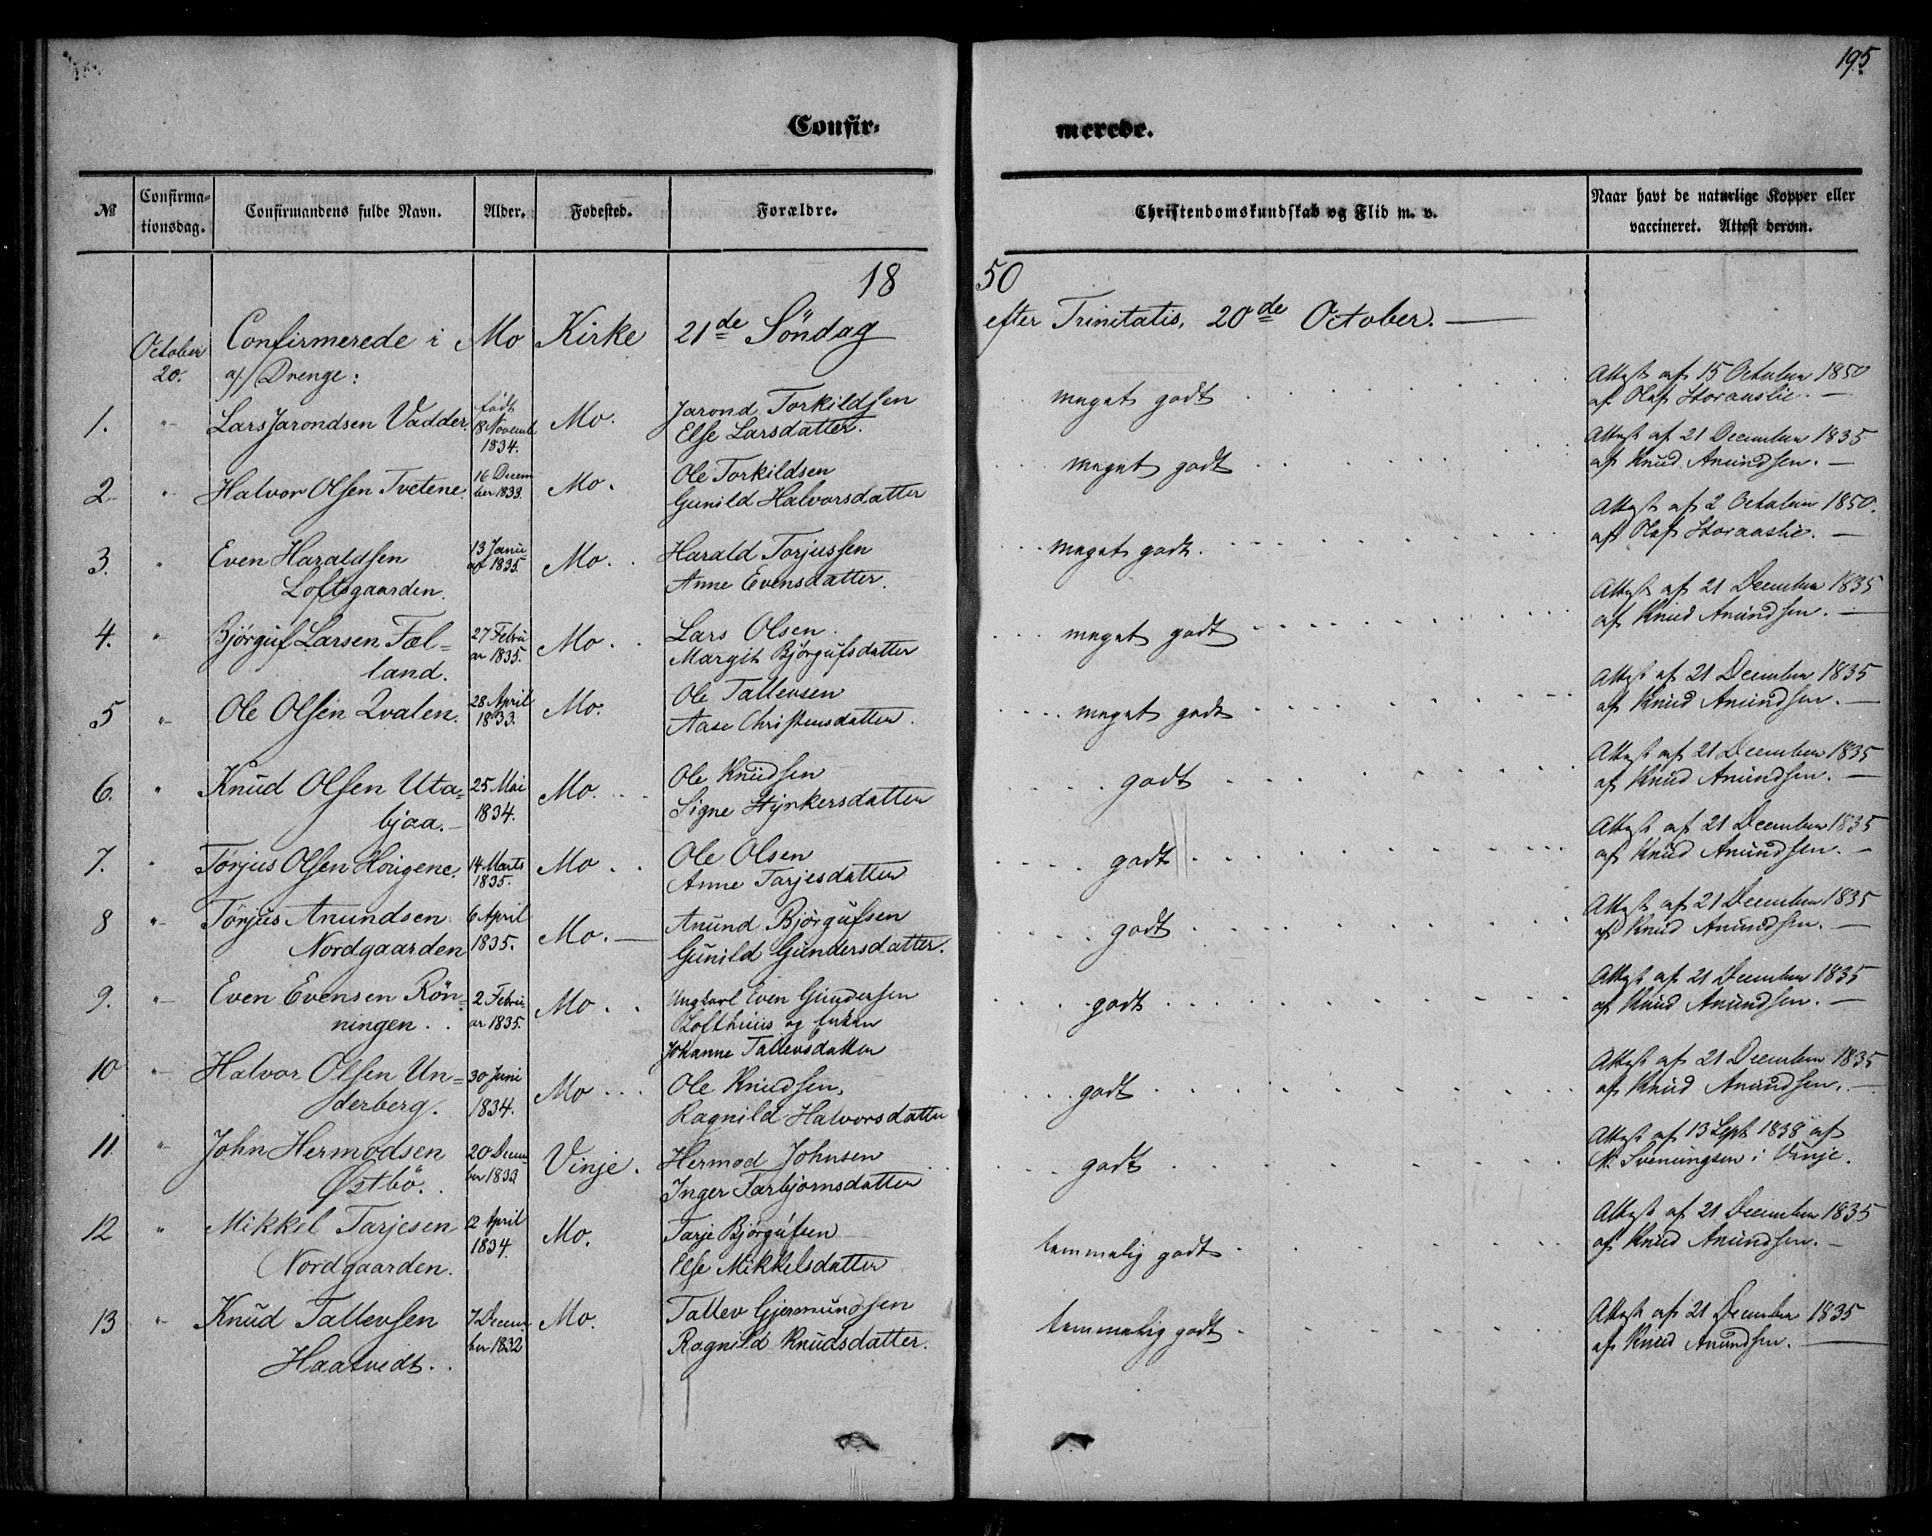 195
Confir-
merede.
№
Confirma-
tionsdag.
Confirmandens fulde Navn.
Alder.
Fødested.
Forældre.
Christendomskundskab og Flid m. v.
Naar havt de naturlige Kopper eller
vaccineret. Attest derom.
18
50
October
20.
Confirmerede i Mo Kirke 21de Söndag
efter Trinitatis, 20de October. —
a/ Drenge:
1. " Lars Jarondsen Vadder
født
18 Novemb
1834.
Mo.
Jarond Torkildsen
Else Larsdatter.
meget godt
Attest af 15 October 1850
af Olaf Storaaslie. —
2 " Halvor Olsen Tvetene
16 Decem
ber 1833.
Mo.
Ole Torkildsen
Gunild Halvorsdatter
meget godt
Attest af 21 December 1835
af Knud Anundsen. —
3. " Even Haraldsen
Loftsgaarden.
13 Janu
ar 1835.
Mo.
Harald Torjussen
Anne Evensdatter.
meget godt
Attest af 2 October 1850.
af Olaf Storaaslie. —
4. " Bjørguf Larsen Fæl-
land.
27 Febru
ar 1835.
Mo.
Lars Olsen.
Margit Bjørgufsdatter
meget godt
Attest af 21 December 1835
af Knud Anundsen. —
5 " Ole Olsen Qvalen.
28 April
1833.
Mo.
Ole Tallevsen
Aase Christensdatter.
meget godt
Attest af 21 December 1835
af Knud Anundsen. —
6. " Knud Olsen Uta-
bjaa. —
25 Mai
1834.
Mo.
Ole Knudsen
Signe Hynkersdatter
godt
Attest af 21 December 1835
af Knud Anundsen. —
7. " Tørjus Olsen Hougene.
14 Marts
1835.
Mo.
Ole Olsen
Anne Tarjesdatter
godt
Attest af 21 December 1835
af Knud Anundsen. —
8 " Tørjus Anundsen
Nordgaarden
6 April
1835.
Mo. —
Anund Bjørgufsen
Gunild Gundersdatter.
godt
Attest af 21 December 1835
af Knud Anundsen. —
9. " Even Evensen Rön-
ningen.
2 Febru
ar 1835.
Mo.
Ungkarl Even Gundersen
Lofthuus og Enken
Johanne Tallevsdatter
godt
Attest af 21 December 1835
af Knud Anundsen. —
10 " Halvor Olsen Un-
derberg.
30 Juni
1834.
Mo
Ole Knudsen,
Ragnild Halvorsdatter
godt
Attest af 21 December 1835
af Knud Anundsen. —
11. " John Hermodsen
Østbö.
20 Decem
ber 1833
Vinje.
Hermod Johnsen
Inger Tarbjørnsdatter
godt
Attest af 13 Sept 1838 af
N. Sveningsen i Vinje.
12 " Mikkel Tarjesen
Nordgaarden.
2 April
1834.
Mo.
Tarje Bjørgufsen
Else Mikkelsdatter
temmelig godt
Attest af 21 December 1835
af Knud Anundsen. —
13 " Knud Tallevsen
Haatvedt.
7 Decem
ber 1832
Mo.
Tallev Gjermundsen
Ragnild Knudsdatter.
temmelig godt
Attest af 21 December 1835
af Knud Anundsen. —